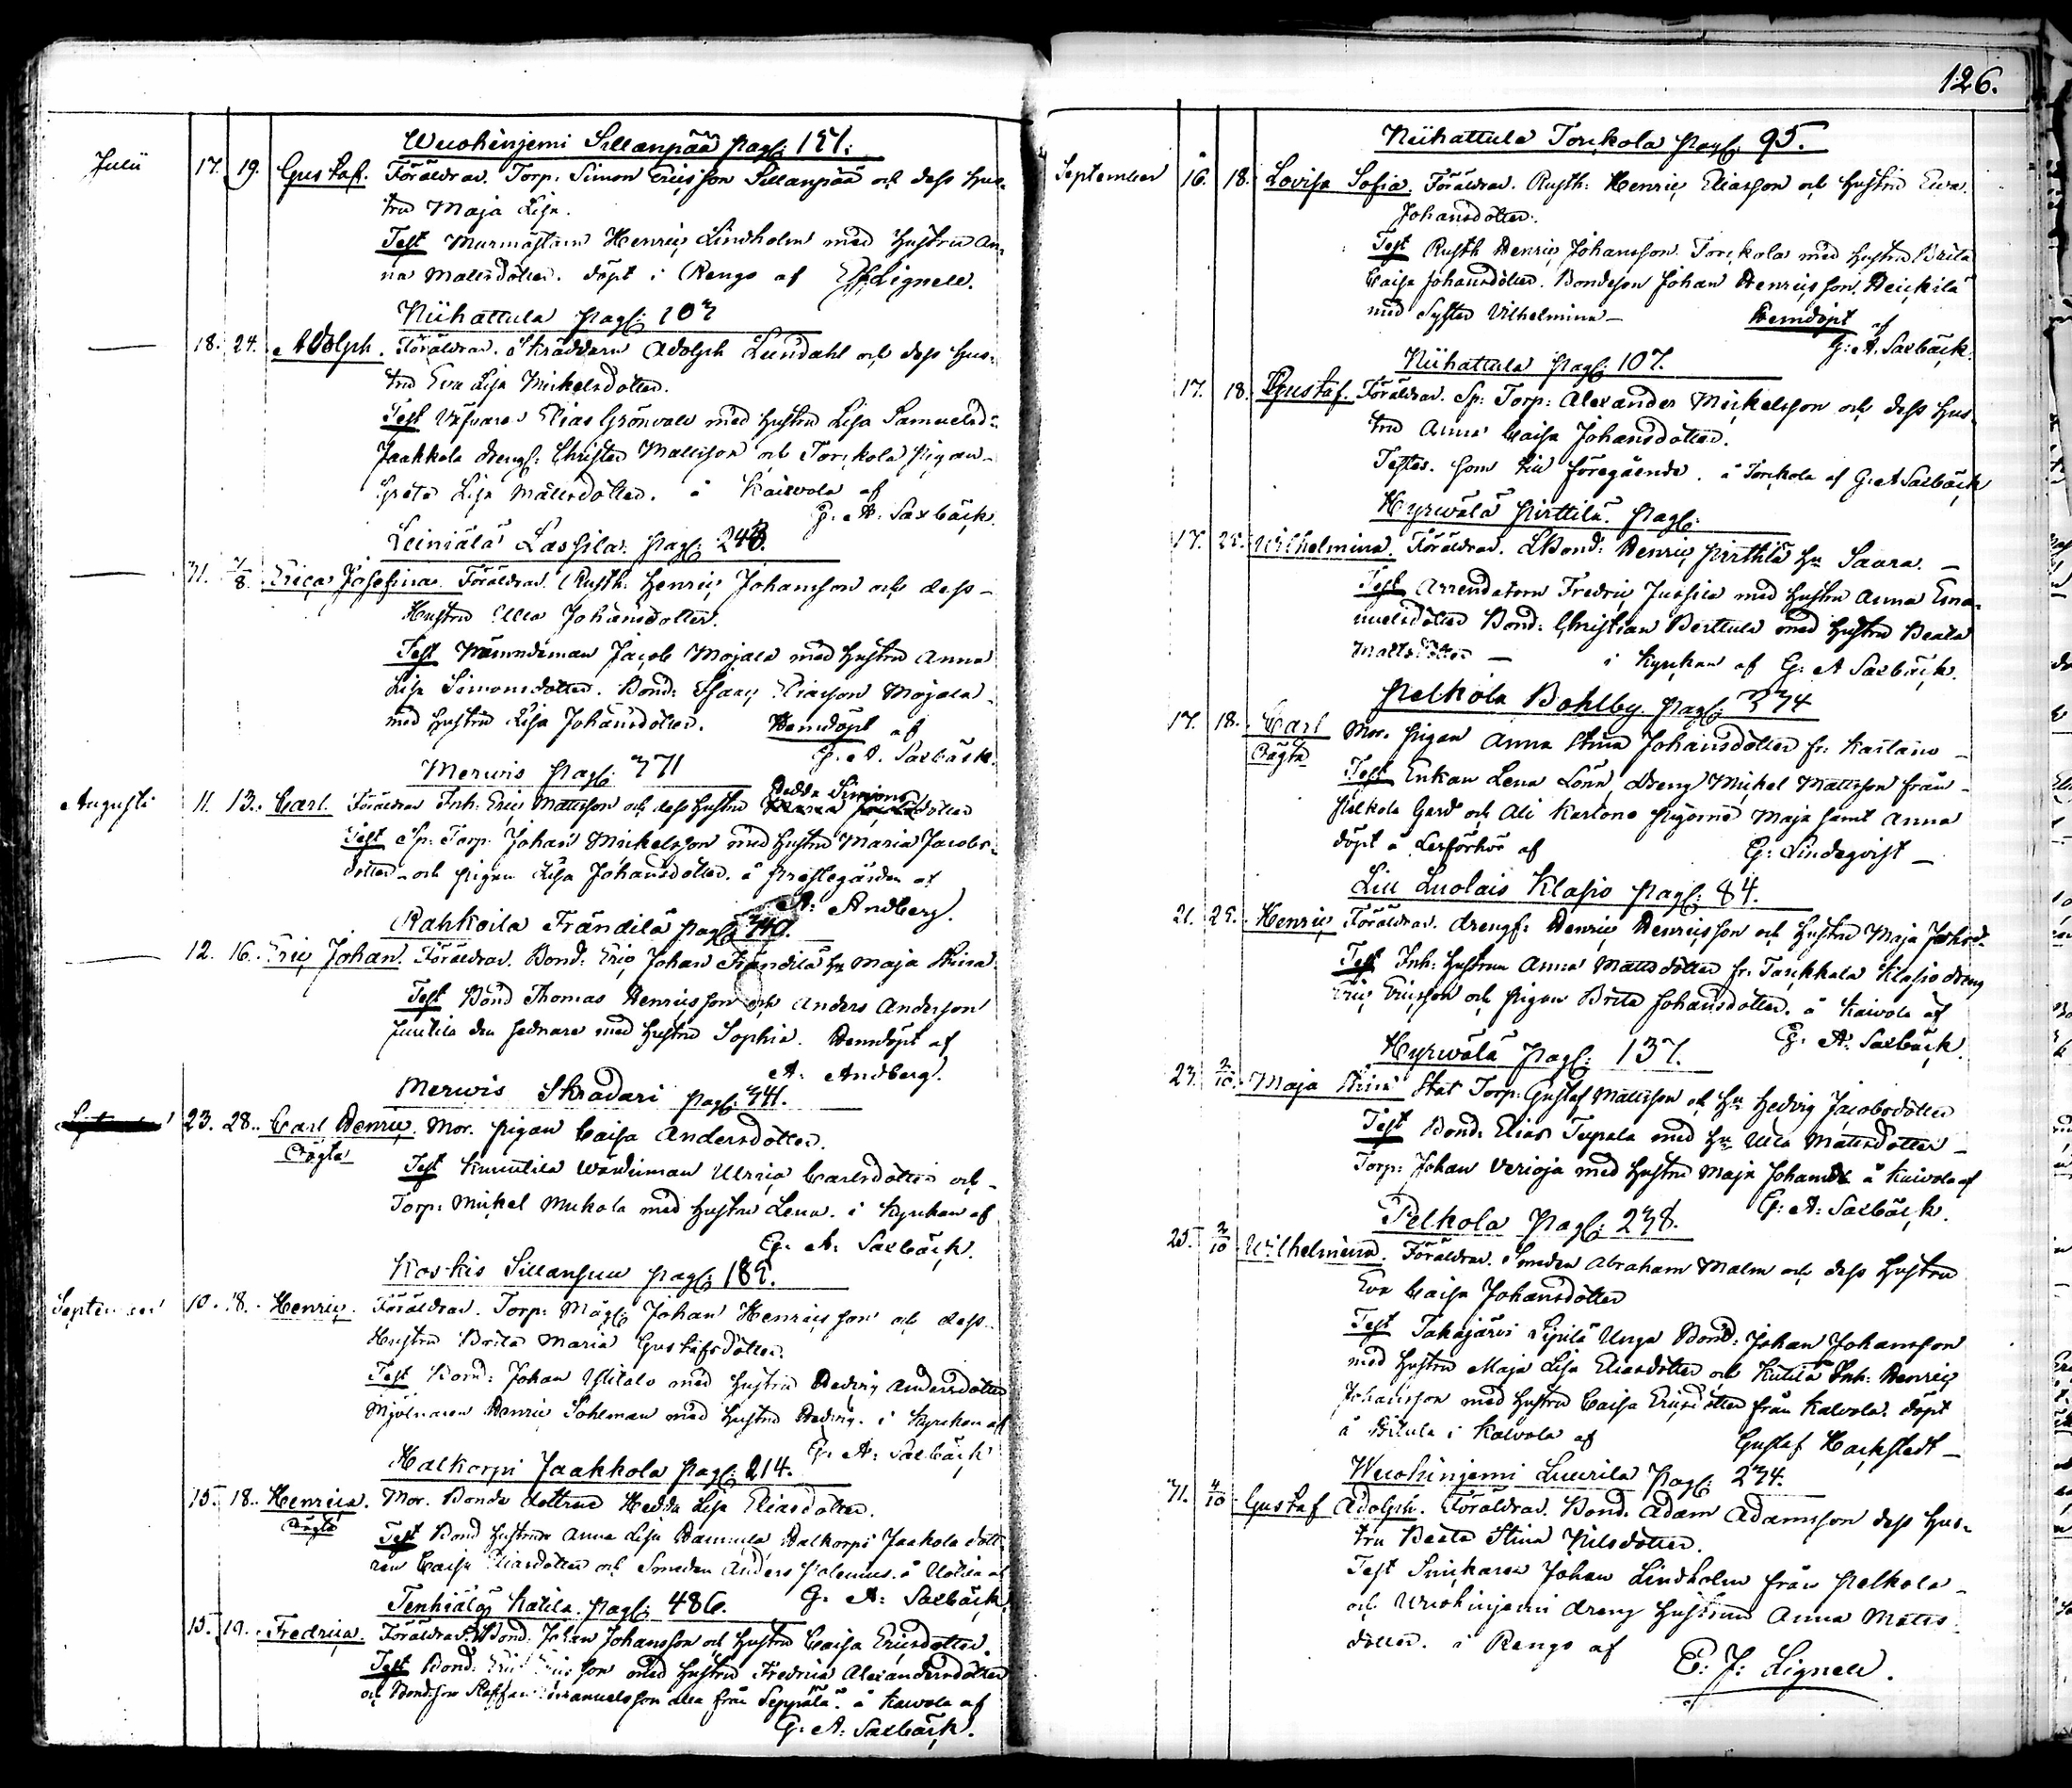 Wuohinjemi Sillanpää pag: 151.
Julii 17. 19. Gustaf. Föräldrar. Torp: Simon Ericsson Sillanpää och dess hus-
tru Maja Lisa.
Test Murmästarn Henric Lindholm med hustru An-
na Matsdotter. döpt i Rengo af E. J. Lignell.
Niihattula pag: 103
— 18. 24. Adolph. Föräldrar. Skräddarn Adolph Lundahl och dess hus-
tru Eva Lisa Mickelsdotter.
Test Väfvaren Elias Grönvall med hustru Lisa Samuelsd:
Jaakkola drengs: Christer Mattsson och Torckola pigan
Greta Lisa Mattsdotter. å Kaivola af
G. A. Saxbäck.
Leiniälä Lassila pag: 243.
— 31. 7/8. Erica Josefina. Föräldrar. Rusth. Henric Johansson och dess
Hustru Ulla Johansdotter.
Test Nämndeman Jacob Mojala med hustru Anna
Lisa Simonsdotter. Bond: Isaac Eliasson Mojala
med hustru Lisa Johansdotter. Hemdöpt af
G. A. Saxbäck.
Merwis pag: 331
Hedda Simons
Augusti 11. 13. Carl. Föräldrar Inh: Eric Mattsson och dess hustru dotter
Test Sp: Torp. Johan Mickelsson med hustru Maria Jacobs-
dotter och pigan Lisa Johansdotter. å prestegården af
A: Andberg.
Rahkoila Frändilä pag: 340.
— 12. 16. Eric Johan. Föräldrar. Bond: Eric Johan Frändilä hu Maja Stina
Test Bond Thomas Henricsson och Anders Andersson
Juutila den sednare med hustru Sophia. Hemdöpt af
A: Andberg.
Merwis Skradari pag: 341.
23. 28. Carl Henric. Mor. pigan Caisa Andersdotter.
Oägta
Test Knuutila Ulrica Carlsdotter och
Torp: Mickel Mukola med hustru Lena. i Kyrkan af
G. A. Saxbäck.
Koskis Sillansuu pag: 189.
September 10. 18. Henric. Föräldrar. Torp: Måg: Johan Henricsson och dess
Hustru Brita Maria Gustafsdotter.
Test Bond: Johan Ylitalo med hustru Hedvig Andersdotter
Mjölnaren Henric Sohlman med hustru Hedvig. i Kyrkan af
G. A: Saxbäck
Halkorpi Jaakkola pag: 214.
15. 18. Henrica. Mor. Bonde dottren Hedda Lisa Eliasdotter.
Oägta
Test Bond hustrun Anna Lisa Halkorpi Jaakola dott-
ren Caisa Eliasdotter och Smeden Anders å Uotila af
G. A: Saxbäck.
Tenhiälä Katila. pag: 486.
15. 19. Fredrica. Föräldrar. Bond. Johan Johansson och hustru Caisa Ericsdotter.
Test Bond: Eric Ericsson med hustru Fredrica Alexandersdotter
och Bondeson Staffan Emanuelsson alla från Seppälä. å Kaivola af
G. A: Saxbäck.
126.
Niihattula Torckola pag: 95.
September 16. 18. Lovisa Sofia. Föräldrar. Rusth: Henric Eliasson och hustru Eva
Johansdotter.
Test Rusth Henric Johansson Torckola med hustru Brita
Caisa Johansdotter. Bondeson Johan Henricsson Heickilä
med Syster Vilhelmina — Hemdöpt af
G. A. Saxbäck.
Niihattula pag: 107.
17. 18. Gustaf. Föräldrar. Sp: Torp: Alexander Mickelsson och dess hus-
tru Anna Caisa Johansdotter.
Testes. som till föregående. å Torckola af G. A Saxbäck
Hyrwälä Pirttilä. pag:
17. 25. Wilhelmina. Föräldrar. LBond: Henric Pirttilä hu Saara. —
Test Arrendatorn Fredric Jussila med hustru Anna Ema-
nuelsdotter Bond: Christian Berttula med hustru Beata
Mattsdotter — i Kyrkan af G: A Saxbäck.
Pelkola Bohlby pag: 334
17. 18. Carl Mor. pigan Anna Stina Johansdotter fr: Kartano —
Oägta
Test Enkan Lena Lönn, dreng Mickel Mattsson från
Pelkola Gård och Ali Kartano pigorne Maja samt Anna
döpt å Läsförhör af G: Lindeqvist —
Liu Luolais Klasio pag: 84.
21. 25. Henric Föräldrar. drengs: Henric Henricsson och hustru Maja Johsd.
Test Inh: hustrun Anna Mattsdotter fr. Torckkala Klasio dreng
Eric Ericsson och pigan Brita Johansdotter. å Kaivola af
G. A: Saxbäck.
Hyrwälä pag: 137.
23. 2/10. Maja Stina Stat Torp: Gustaf Mattsson och hu Hedvig Jacobsdotter
Test Bond: Elias Tepsala med hu Ulla Mattsdotter —
Torp: Johan Verioja med hustru Maja Johansd: å Kaivola af
G: A: Saxbäck.
Pelkola pag: 238.
25. 2/10 Wilhelmina. Föräldrar. Smeden Abraham Malm och dess hustru
Eva Caisa Johansdotter
Test Takajärvi Sipilä Unga Bond: Johan Johansson
med hustru Maja Lisa Eliasdotter och Kutila Inh: Henric
Johansson med hustru Caisa Ericsdotter från Kalvola. döpt
å i Kalvola af Gustaf Hackstedt —
Wuohinjemi Luurila pag: 234.
31. 4/10 Gustaf Adolph. Föräldrar. Bond. Adam Adamsson dess hus-
tru Beata Stina Nilsdotter.
Test Snickaren Johan Lindholm från Pelkola
och Wuohinjemi dreng hustrun Anna Matts-
dotter. i Rengo af
E: J: Lignell.